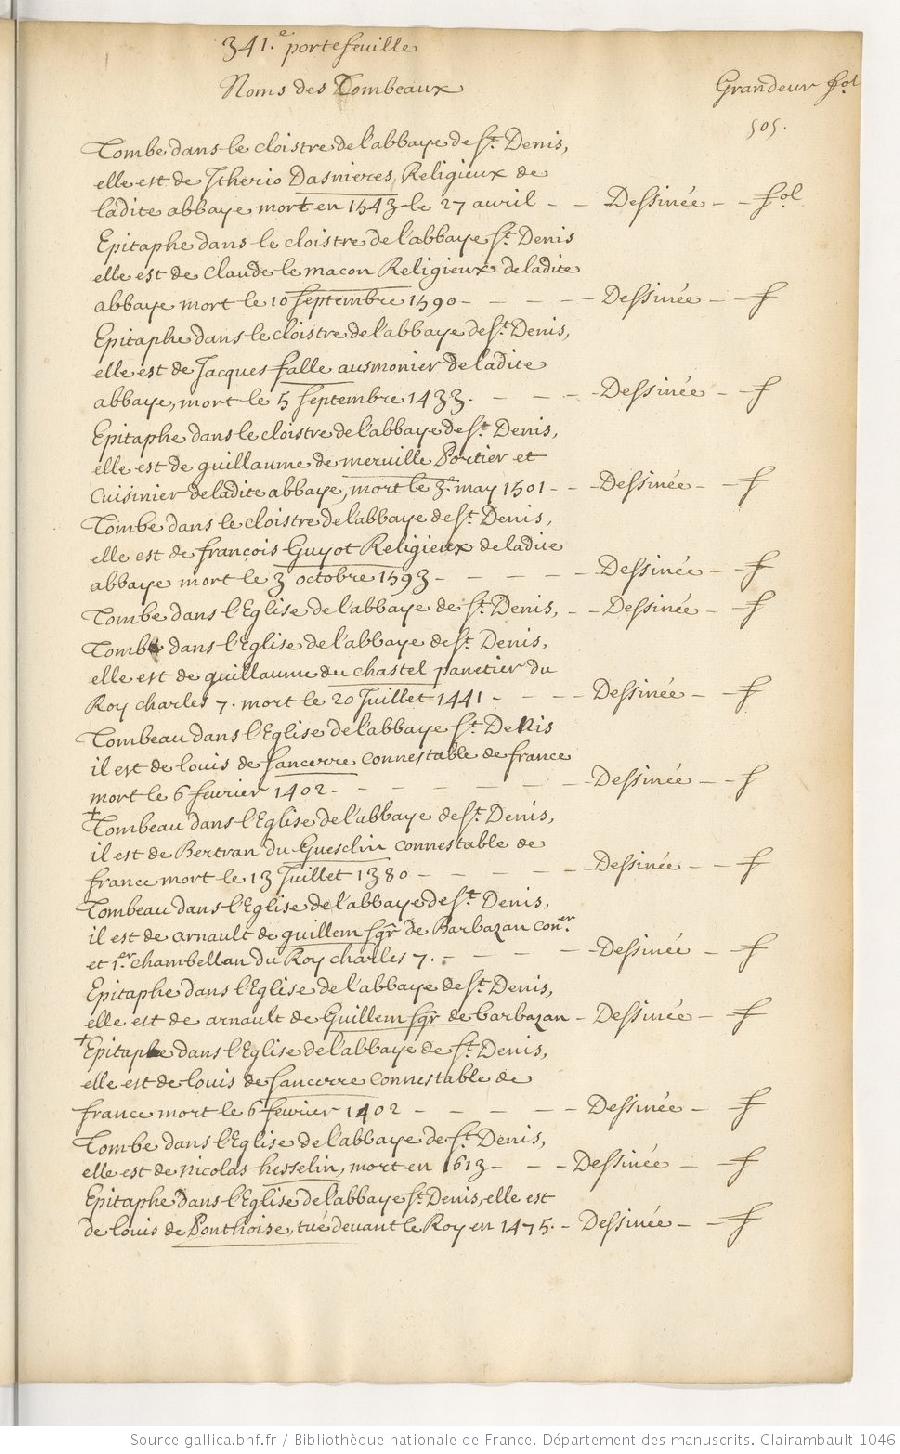 341.e portefeuille
Noms des Tombeaux Grandeur fol
505.
Tombe dans le cloistre de l'abbaye de St. Denis,
elle est de Itherio Dasnieres, Religieux de
ladite abbaye mort en 1543 le 27 avril - - Dessinée - - fol
Epitaphe dans le cloistre de l'abbaye St. Denis
elle est de Claude le macon Religieux de ladite
abbaye mort le 10 septembre 1590 - - - - - Dessinée - f
Epitaphe dans le cloistre de l'abbaye de St. Denis,
elle est de Jacques falle ausmonier de ladite
abbaye, mort le 5 septembre 1433. - - - - Dessinée - f
Epitaphe dans le cloistre de l'abbaye de St. Denis,
elle est de guillaume de merville Portier et
Cuisinier de ladite abbaye, mort le 3.e may 1501 - - - Dessinée - f
Tombe dans le cloistre de l'abbaye de St. Denis,
elle est de francois Guyot Religieux de ladite
abbaye mort le 3 octobre 1593 - - - - - Dessinée - f
Tombe dans l'Eglise de l'abbaye de St. Denis, - - Dessinée - f
Tombe dans l'Eglise de l'abbaye de St. Denis,
elle est de guillaume du chastel panetier du
Roy charles 7. mort le 20 Juillet 1441 - - - - Dessinée - f
Tombeau dans l'Eglise de l'abbaye St. Denis
il est de louis de sancerre connestable de france
mort le 6 fevrier 1402 - - - - - - - Dessinée - f
+
Tombeau dans l'Eglise de l'abbaye de St. Denis,
il est de Bertran du Guesclin connestable de
france mort le 13 Juillet 1380 - - - - - Dessinée - - f
Tombeau dans l'Eglise de l'abbaye de St. Denis,
il est de arnault de guillem sgr de Barbazan coner.
et 1.er chambellan du Roy charles 7. - - - - - Dessinée - f
Epitaphe dans l'Eglise de l'abbaye de St. Denis,
elle est de arnault de Guillem sgr de barbazan - Dessinée - f
+Epitaphe dans l'Eglise de l'abbaye de St. Denis,
elle est de louis de sancerre connestable de
france mort le 6 fevrier 1402 - - - - - Dessinée - f
Tombe dans l'Eglise de l'abbaye de St. Denis,
elle est de nicolas hesselin, mort en 1613 - - - Dessinée - f
Epitaphe dans l'Eglise de l'abbaye St. Denis, elle est
de louis de Ponthoise, tué devant le Roy en 1475. - Dessinée - - f
Source gallica.bnf.fr / Bibliothèque nationale de France. Département des manuscrits. Clairambault 1046